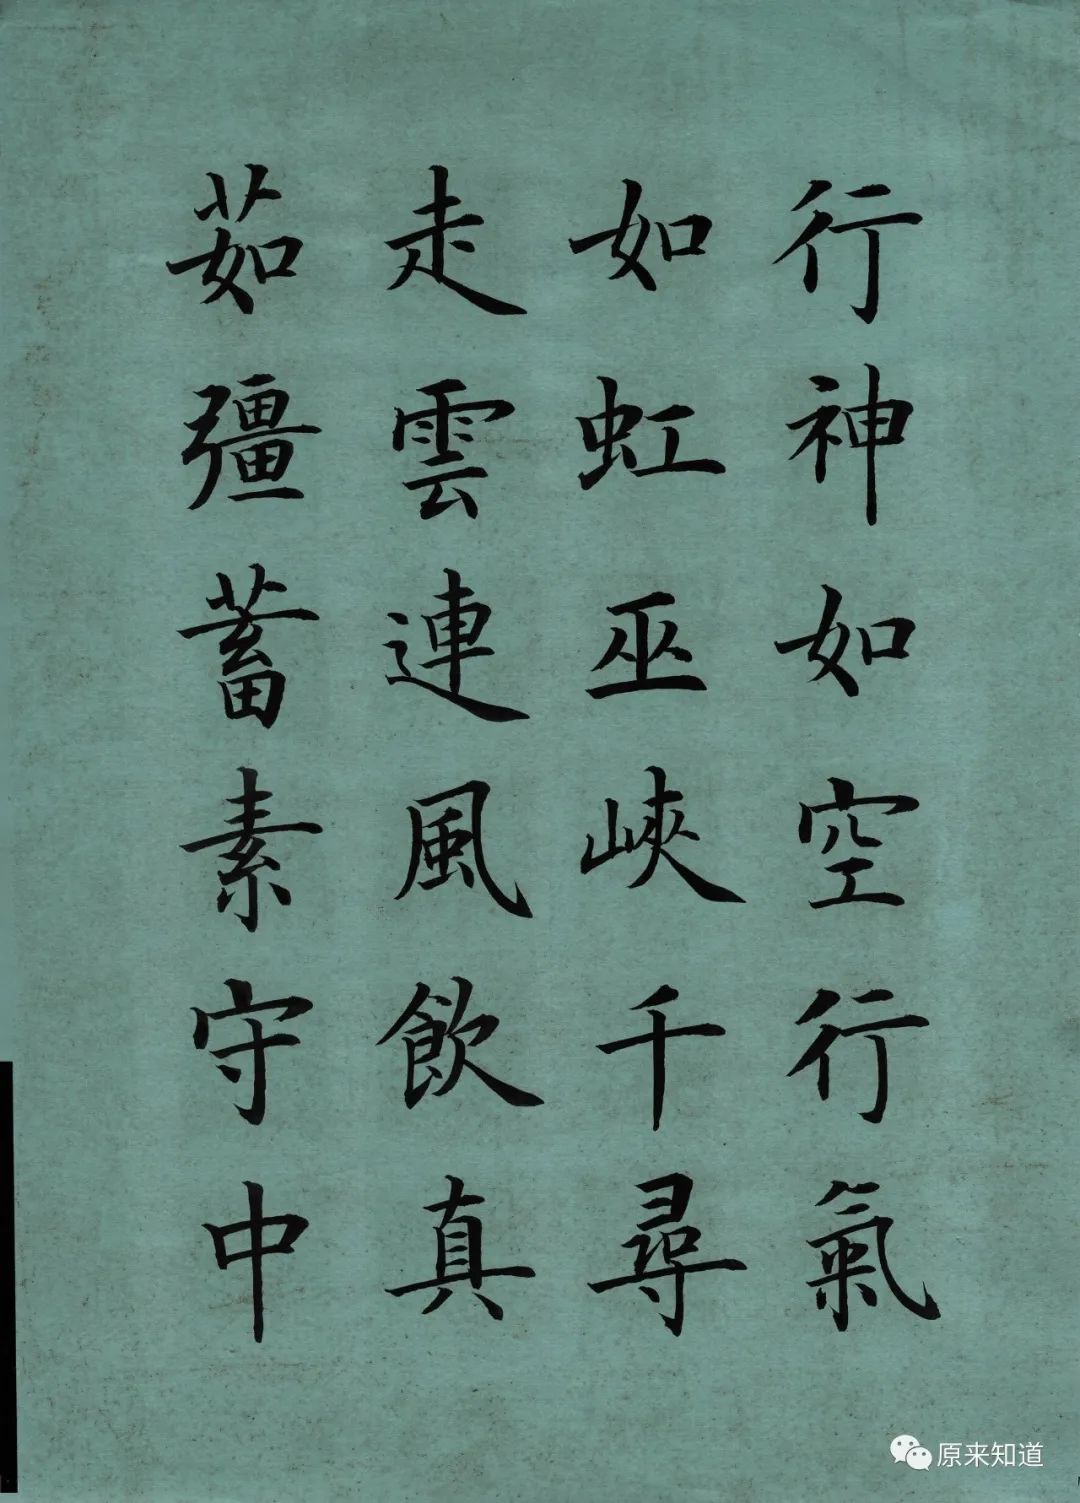 行神如空行氣
如虹巫峽千尋
走雲連風飲真
茹彊蓄素守中
原来知道